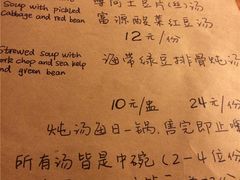 Soup with pickled
Cabbage and red bean
富源酸菜红豆汤
12元/份
Strewed soup with
pork chop and sea kelp
and green bean
海带绿豆排骨炖汤
10元/盅 24元/份
炖汤每日一锅,售完即止
所有汤皆是中碗(2-4位份